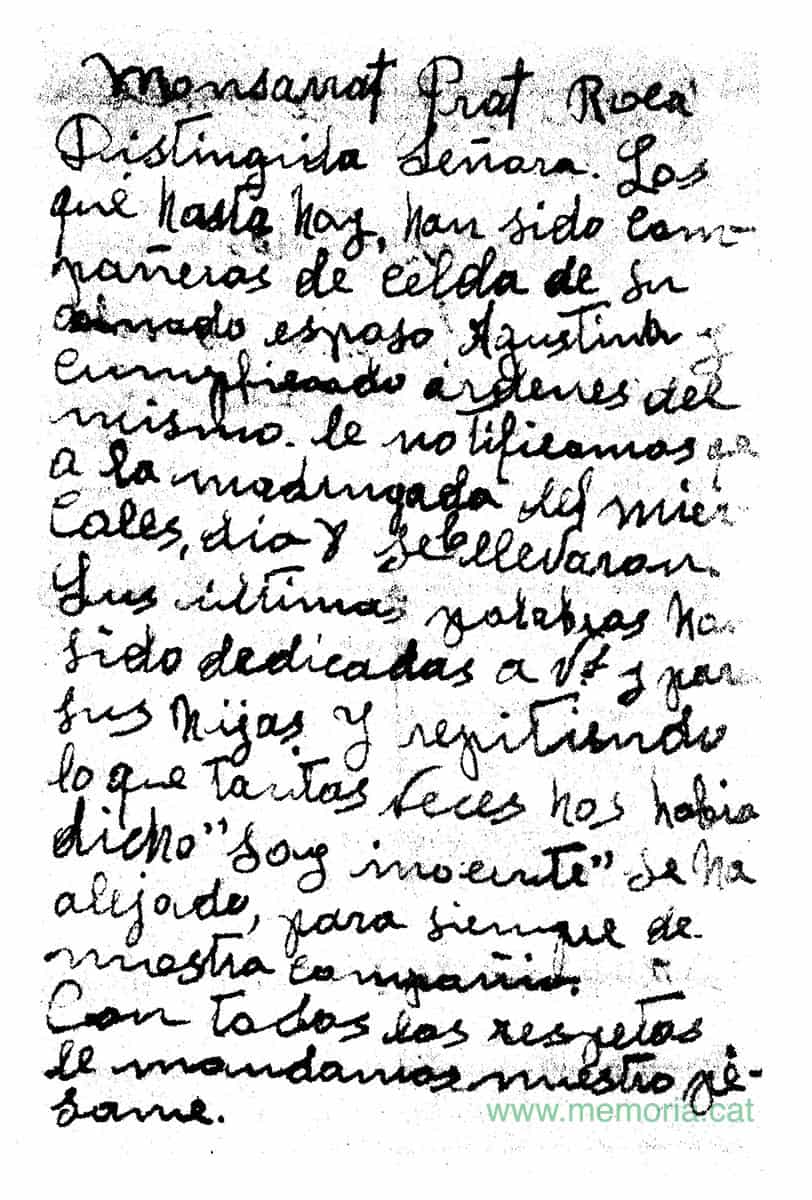 Monsarrat Prat Roca
Distinguida Señora. Los
que hasta hoy, han sido com-
pañeros de celda de su
esposo Agustin y
cumpliendo ordenes del
mismo. le notificamos qe
a la madrugada del mier
coles, dia se le llevaron.
Sus ultimas palabras ha
sido dedicadas a Vd y par
sus hijas y repitiendo
lo que tantas veces nos habia
dicho "soy inocente" se ha
alejado, para siempre de
nuestra compañia.
Con todos los respetos
le mandamos nuestro pé-
same.
www.memoria.cat